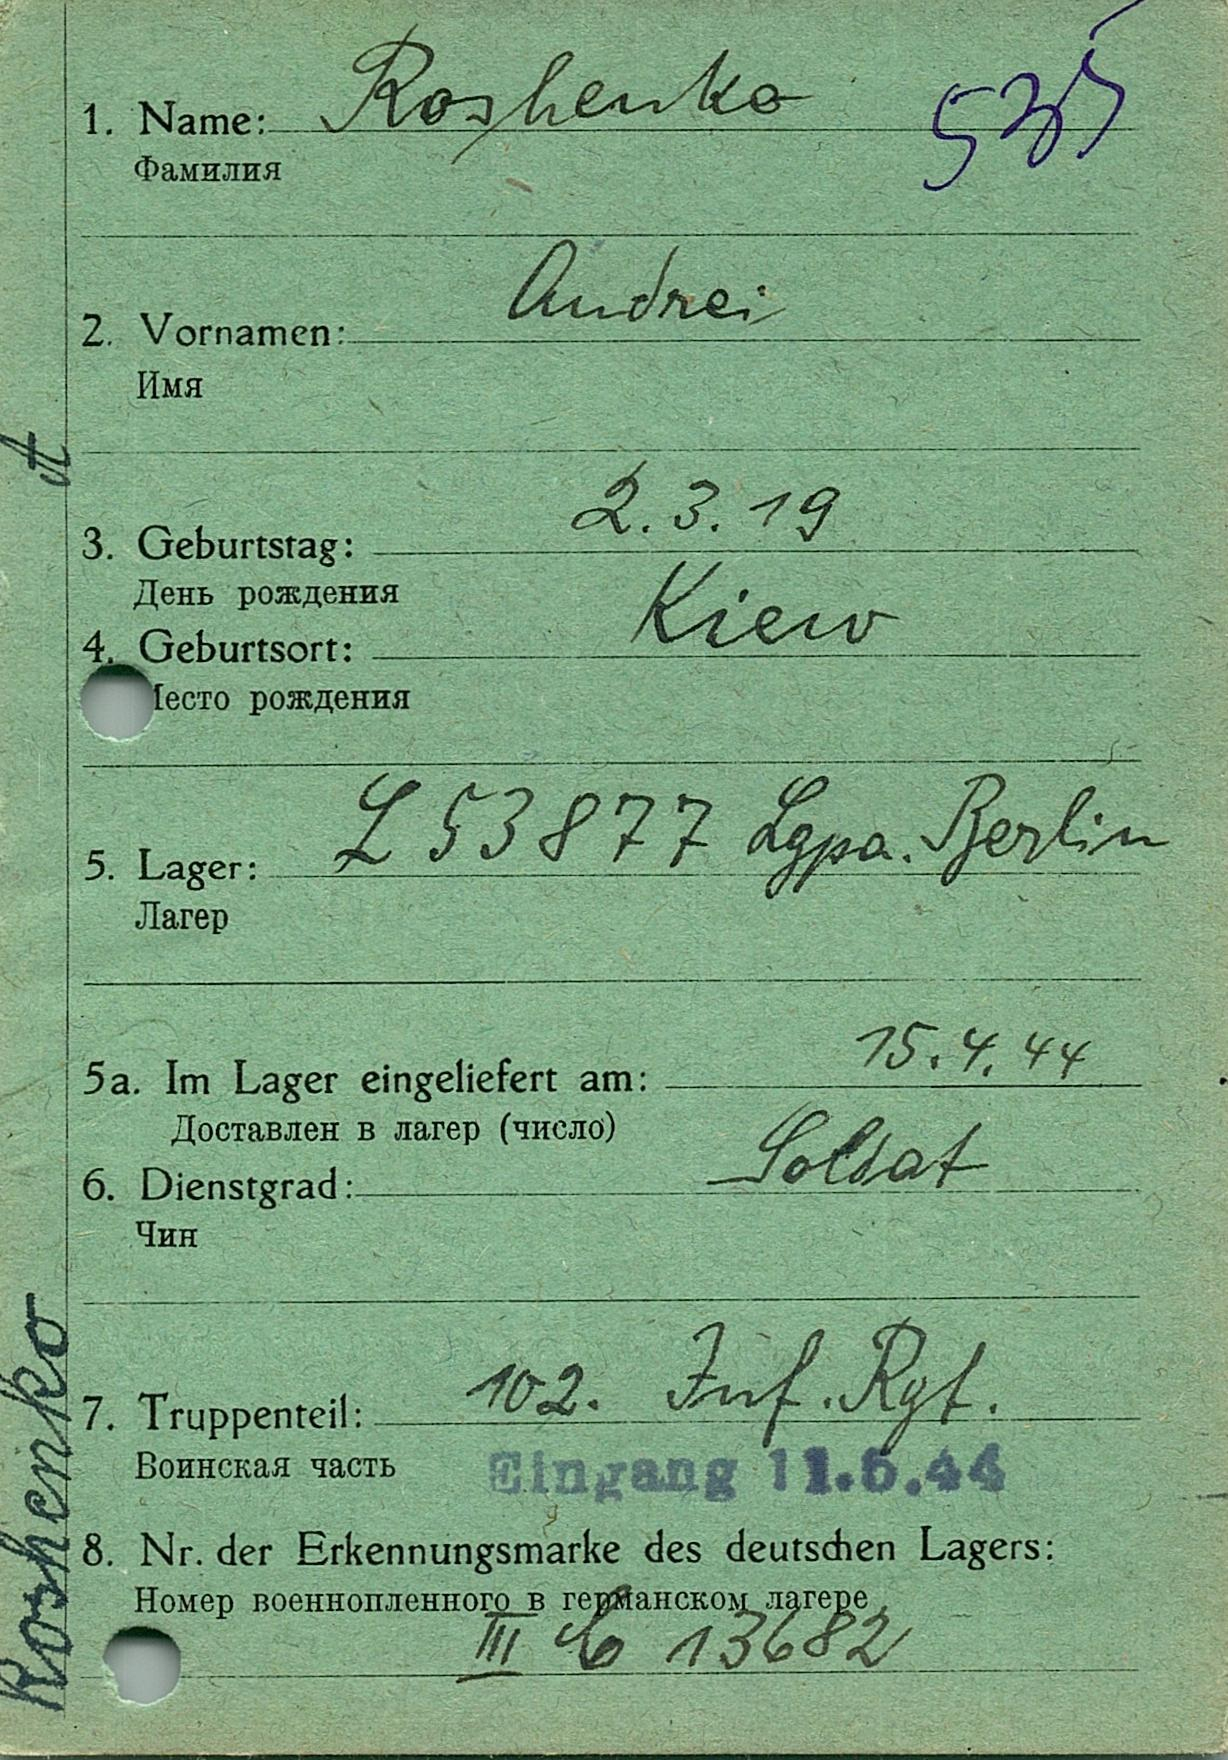 535
1. Name: Roshenko
Фамилия
2. Vornamen: Andrei
Имя
3. Geburtstag: 2.3.19
День рождения
4. Geburtsort: Kiew
Место рождения
5. Lager: L 53877 Lgpa. Berlin
Лагер
5a. Im Lager eingeliefert am: 15.4.44
Доставлен в лагер (число)
6. Dienstgrad: Soldat
Чин
7. Truppenteil: 102. Inf. Rgt.
Воинская часть
Eingang 11.5.44
8. Nr. der Erkennungsmarke des deutschen Lagers:
Номер военнопленного в германском лагере
III C 13682
Roshenko A